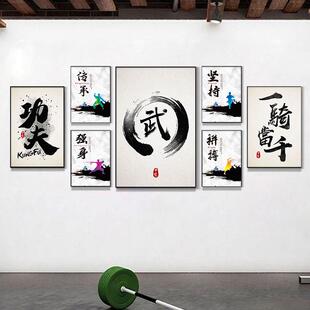 功夫
KUNGFU
传承
强身
武
坚持
拼搏
一騎當千